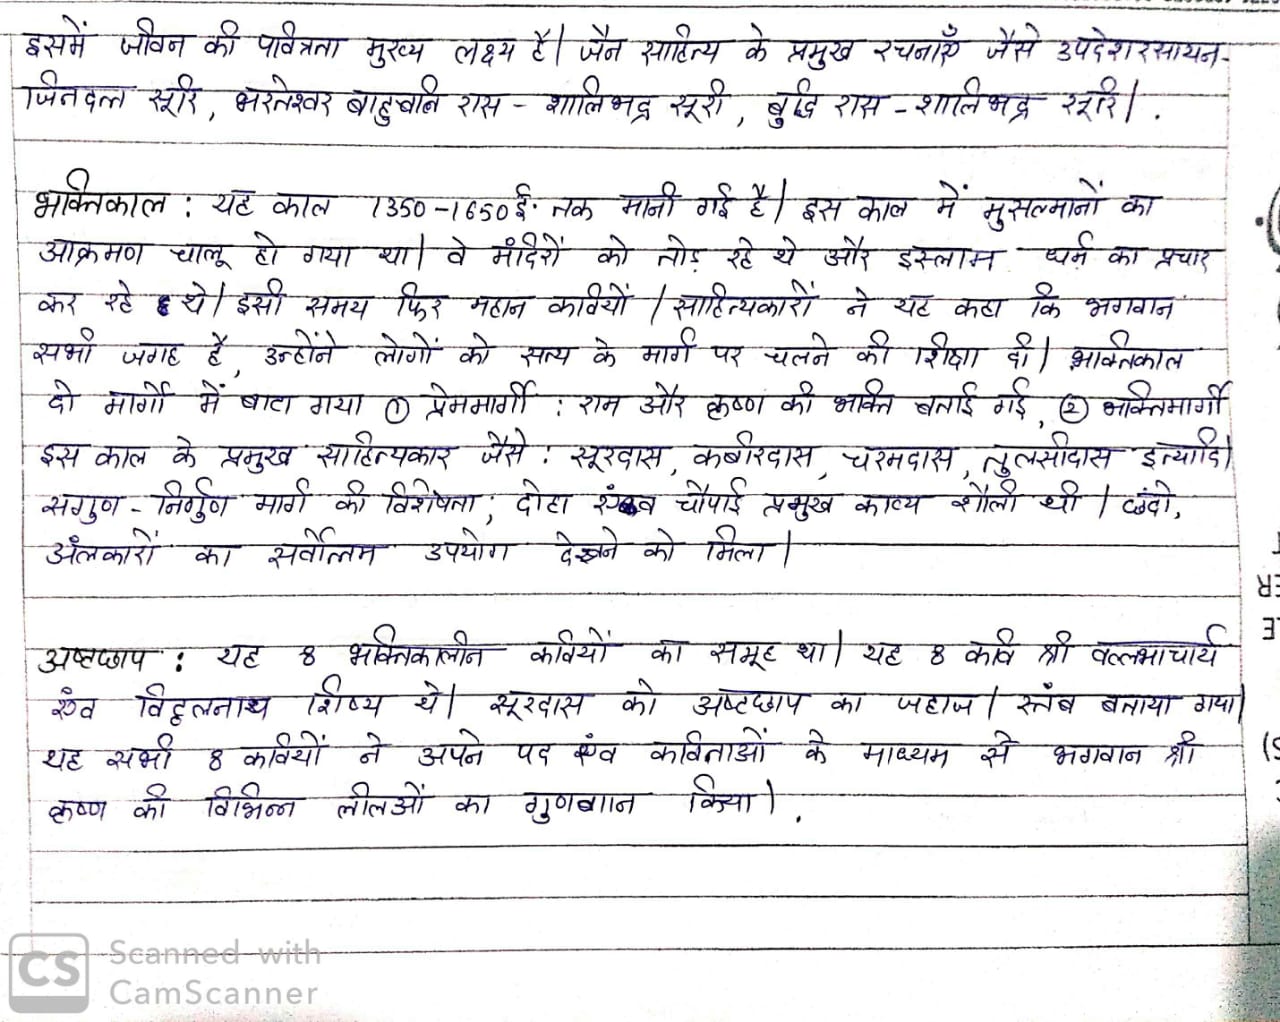 इसमें जीवन की पवित्रता मुख्य लक्ष्य है| जैन साहित्य के प्रमुख रचनाएँ जैसे उपदेशरसायन-
जिनदत्त सूरि, भरतेश्वर बाहुबलि रास - शालिभद्र सूरी, बुद्धि रास - शालिभद्र सूरि|
भक्तिकाल : यह काल 1350-1650 ई. तक मानी गई है| इस काल में मुसलमानों का
आक्रमण चालू हो गया था| वे मंदिरों को तोड़ रहे थे और इस्लाम धर्म का प्रचार
कर रहे थे| इसी समय फिर महान कवियों / साहित्यकारों ने यह कहा कि भगवान
सभी जगह है, उन्होंने लोगों को सत्य के मार्ग पर चलने की शिक्षा दी| भक्तिकाल
दो मार्गों में बाटा गया ① प्रेममार्गी : राम और कृष्ण की भक्ति बताई गई, ② भक्तिमार्गी
इस काल के प्रमुख साहित्यकार जैसे : सूरदास, कबीरदास, चरमदास, तुलसीदास इत्यादि|
सगुण - निर्गुण मार्ग की विशेषता; दोहा एंव चौपाई प्रमुख काव्य शैली थी | छंदो,
अंलकारों का सर्वोत्तम उपयोग देखने को मिला|
अष्टछाप : यह 8 भक्तिकालीन कवियों का समूह था| यह 8 कवि श्री वल्लभाचार्य
एंव विट्ठलनाथ शिष्य थे| सूरदास को अष्टछाप का जहाज / स्तंब बताया गया|
यह सभी 8 कवियों ने अपने पद एंव कविताओं के माध्यम से भगवान श्री
कृष्ण की विभिन्न लीलओं का किया|
CS Scanned with
CamScanner